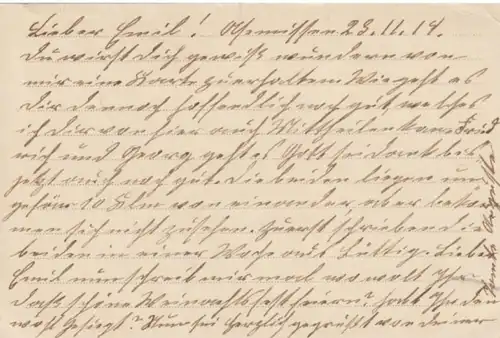 Lieber Emil! Asemissen 23.11.14.
Du wirst dich gewiß wundern von
mir eine Karte zu erhalten. Wie geht es
dir dennoch hoffendlich noch gut, welches
ich dir von hier auch Mittheilen kan. Fried
rich und Georg geht es Gott sei dank bis
jetzt auch noch gut. die beiden liegen un
gefähr 10 Klm von einander aber bekom
men sich nicht zusehen. Zuerst schrieben die
beiden in einer Woche aus Lüttig. Lieber
Emil nun schreib mir mal wo wolt Ihr
das schöne Weinachtsfest feiern? habt Ihr den
wohl Gesiegt? Nun sei herzlich gegrüßt von deiner